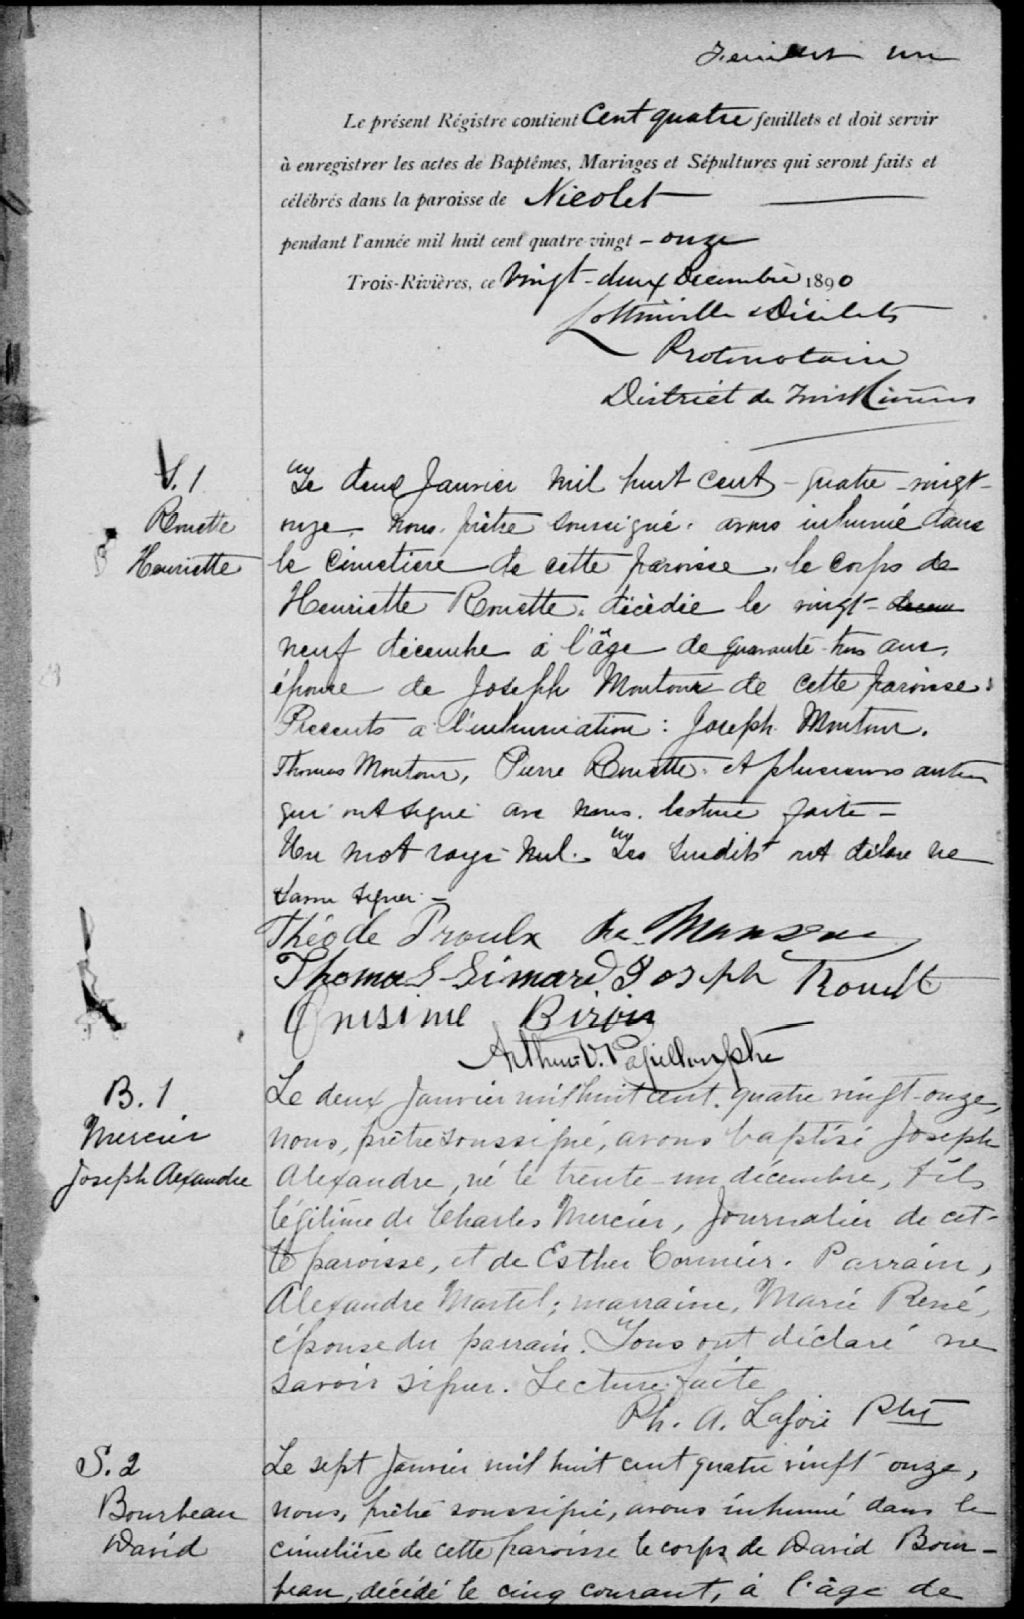 Feuillet un
Le présent Régistre contient Cent quatre feuillets et doit servir
à enregistrer les actes de Baptêmes, Mariages et Sépultures qui seront faits et
célébrés dans la paroisse de Nicolet
pendant l'année mil huit cent quatre-vingt - onze
Trois-Rivières, ce Vingt-deux Décembre 1890
Lottinville & Désilets
Protonotaire
District de Trois Rivières
S. 1
Rouette
Henriette
Le deux Janvier mil huit cent - quatre - vingt -
onze nous, prêtre soussigné, avons inhumé dans
le cimetière de cette paroisse, le corps de
Henriette Rouette, décédée le vingt -
neuf décembre à l'âge de quarante trois ans,
épouse de Joseph Montour de cette paroisse.
Présents à l'inhumation : Joseph Montour,
Thomas Montour, Pierre Rouette, et plusieurs autres
qui ont signé avec nous. lecture faite -
Un mot rayé nul. Les susdits ont déclaré ne
savoir signer -
Théode Proulx
Thomas S. Simard Joseph Rouett
Onisime Biron
Arthur V. Papillon ptre
B. 1
Mercier
Joseph Alexandre
Le deux Janvier mil huit cent quatre vingt-onze,
nous, prêtre soussigné, avons baptisé Joseph
Alexandre, né le trente-un décembre, fils
légitime de Charles Mercier, Journalier de cet-
te paroisse, et de Esther Cormier. Parrain,
Alexandre Martel; marraine, Marie René,
épouse du parrain. Tous ont déclaré ne
savoir signer. Lecture faite
Ph. A. Lajoie Ptre
S. 2
Bourbeau
David
Le sept Janvier mil huit cent quatre vingt onze,
nous, prêtre soussigné, avons inhumé dans le
cimetière de cette paroisse le corps de David Bour-
beau, décédé le cinq courant, à l'âge de